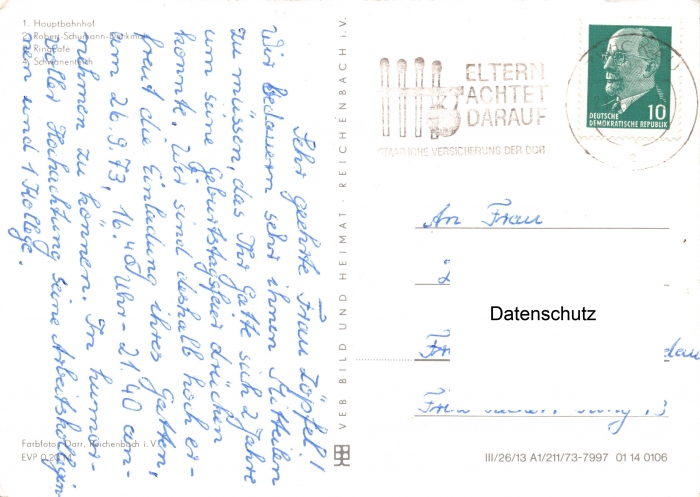 1. Hauptbahnhof
2. Robert-Schumann-Denkmal
3. Ringcafé
4. Schwanenteich
Sehr geehrte Frau Töpfel!
Wir bedauern sehr ihnen mitteilen
zu müssen, das Ihr Gatte sich 2 Jahre
um seine Geburtstagsfeier drücken
konnte. Wir sind deshalb hoch er-
freut die Einladung ihres Gatten,
am 26.9.73, 16.40 Uhr - 21.40 an-
nehmen zu können. In humor-
voller Hochachtung seine Arbeitskollegin-
nen und 1 Kollege.
Farbfotos: Darr, Reichenbach i. V.
EVP 0,20 M
VEB BILD UND HEIMAT · REICHENBACH i. V.
ELTERN
ACHTET
DARAUF
STAATLICHE VERSICHERUNG DER DDR
10
DEUTSCHE
DEMOKRATISCHE REPUBLIK
An Frau
Datenschutz
III/26/13 A1/211/73-7997 01 14 0106